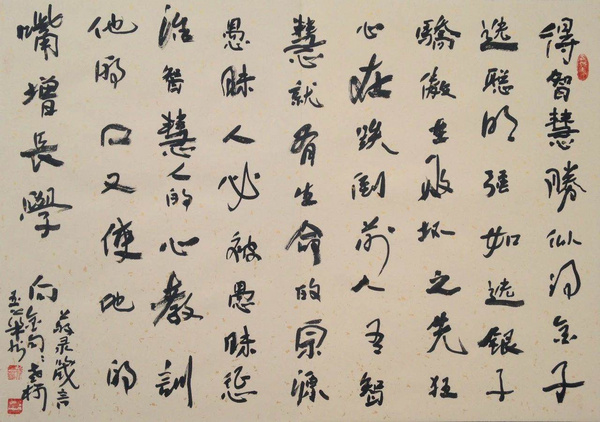 得智慧勝似得金子
選聰明强如選銀子
驕傲在敗坏之先狂
心在跌倒前人有智
慧就有生命的泉源
愚昧人必被愚昧惩
治智慧人的心教訓
他的口又使他的
嘴增長學
录箴言
金句